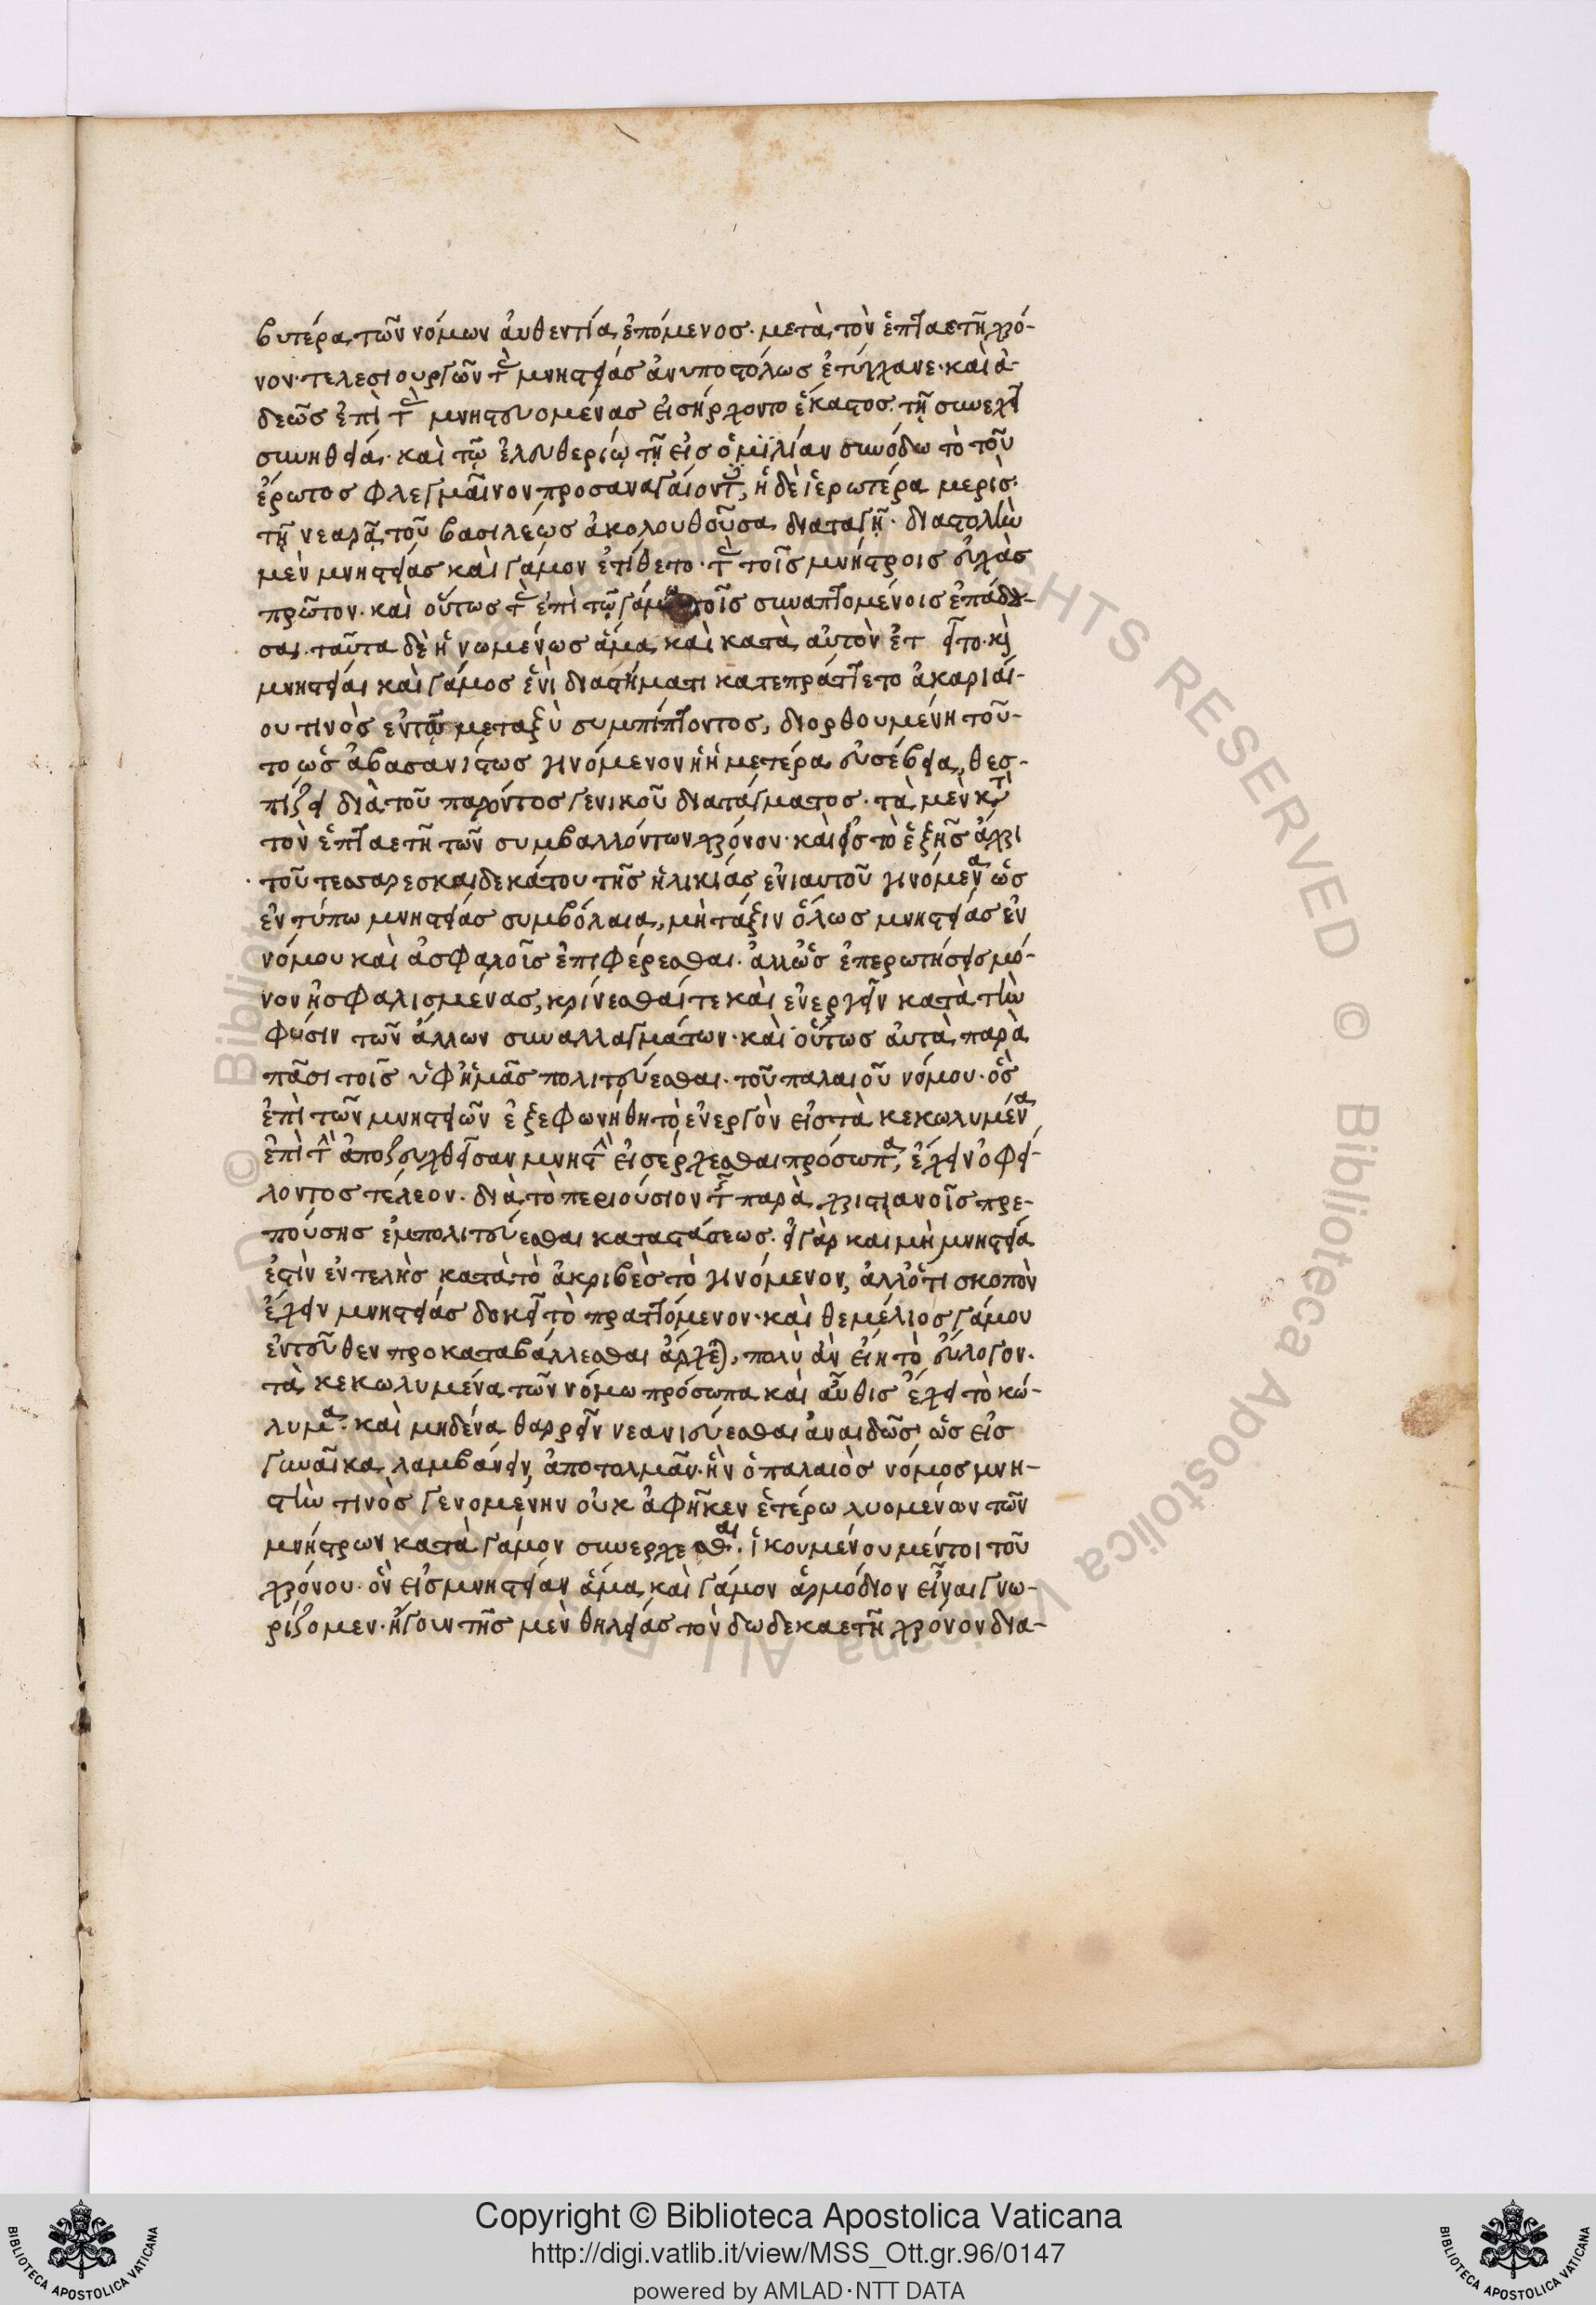 βυτέρα τῶν νόμων ἀυθεντία ἑπόμενος· μετὰ τὸν ἑπταετῆ χρό-
νον· τελεσιουργῶν τὰς μνηστείας ἀνυποστόλως ἐτύγχανε· καὶ ἀ-
δεῶς ἐπὶ τὰς μνηστευομένας εἰσήρχοντο ἕκαστος· τῇ συνεχεῖ
συνηθεία· καὶ τῷ ἐλευθερίῳ τῇ εἰς ὁμιλίαν συνόδω τὸ τοῦ
ἔρωτος φλεγμαῖνον προσαναγαίοντες, ἡ δὲ ἱερωτέρα μερις·
τῇ νεαρᾷ τοῦ βασιλέως ἀκολουθοῦσα διαταγῇ· διαστολὴν
μὲν μνηστείας καὶ γάμον ἐτίθετο· τὰς τοῖς μνήστροις εὐχὰς
πρῶτον· καὶ οὕτως τὰς ἐπὶ τῷ γάμω τοῖς συναπτομένοις ἐπάδου-
σαι· ταῦτα δὲ ἡνωμένως ἅμα καὶ κατὰ αὐτὸν ἐτ εῖτο· καὶ
μνηστεία καὶ γάμος ἑνὶ διαστήματι κατεπράττετο ἀκαριαί-
ου τινὸς ἐντῷ μεταξὺ συμπίπτοντος, διορθουμένη τοῦ-
το ὡς ἀβασανίστως γινόμενον ἡ ἡμετέρα εὐσέβεια, θεσ-
πίζει διὰ τοῦ παρόντος γενικοῦ διατάγματος· τὰ μὲν κατὰ
τὸν ἑπταετῆ τῶν συμβαλλόντων χρόνον· καὶ εἰς τὸ ἑξῆς ἄχρι
τοῦ τεσσαρεσκαιδεκάτου τῆς ἡλικίας ἐνιαυτοῦ γινόμενα ὡς
ἐν τύπω μνηστείας συμβόλαια, μὴ τάξιν ὅλως μνηστείας ἐν
νόμου καὶ ἀσφαλοῖς ἐπιφέρεσθαι· ἀλλ' ὡς ἐπερωτήσεις μό-
νον ἠσφαλισμένας, κρίνεσθαί τε καὶ ἐνεργεῖν κατὰ τὴν
φύσιν τῶν ἄλλων συναλλαγμάτων· καὶ οὕτως ἀυτὰ παρὰ
πᾶσι τοῖς ὑφ' ἡμᾶς πολιτεύεσθαι· τοῦ παλαιοῦ νόμου· ὃς
ἐπὶ τῶν μνηστειῶν ἐξεφωνήθη τὸ ἐνεργὸν εἰς τὰ κεκωλυμένα
ἐπὶ τὴν ἀποζευχθεῖσαν μνηστὴν εἰσέρχεσθαι πρόσωπα, ἔχειν ὀφεί-
λοντος τέλεον· διὰ τὸ περιούσιον τῆς παρὰ χριστιανοῖς πρε-
πούσης ἐμπολιτεύεσθαι καταστάσεως· εἰ γὰρ και μὴ μνηστεία
ἐστὶν ἐντελὴς κατὰ τὸ ἀκριβὲς τὸ γινόμενον, ἀλλ' ὅτι σκοπὸν
ἔχειν μνηστείας δοκεῖ τὸ πραττόμενον· καὶ θεμέλιος γάμου
ἐντεῦθεν προκαταβάλλεσθαι ἄρχεται, πολὺ ἂν εἴη τὸ εὔλογον·
τὰ κεκωλυμένα τῶν νόμω πρόσωπα καὶ αὖθις ἔχει τὸ κώ-
λυμα· καὶ μηδένα θαρρεῖν νεανιεύεσθαι ἀναιδῶς ὡς εἰς
γυναῖκα λαμβάνειν ἀποτολμᾶν· ἣν ὁ παλαιὸς νόμος μνη-
στὴν τινὸς γενομένην οὐκ ἀφῆκεν ἑτέρω λυομένων τῶν
μνήστρων κατὰ γάμον συνέρχεσθαι· ἱκουμένου μέντοι τοῦ
χρόνου· ὃν εἰς μνηστείαν ἅμα καὶ γάμον ἁρμόδιον εἶναι γνω-
ρίζομεν· ἤγουν τῆς μὲν θηλείας τὸν δωδεκαετῆ χρόνον δια-
Copyright © Biblioteca Apostolica Vaticana
http://digi.vatlib.it/view/MSS_Ott.gr.96/0147
powered by AMLAD·NTT DATA